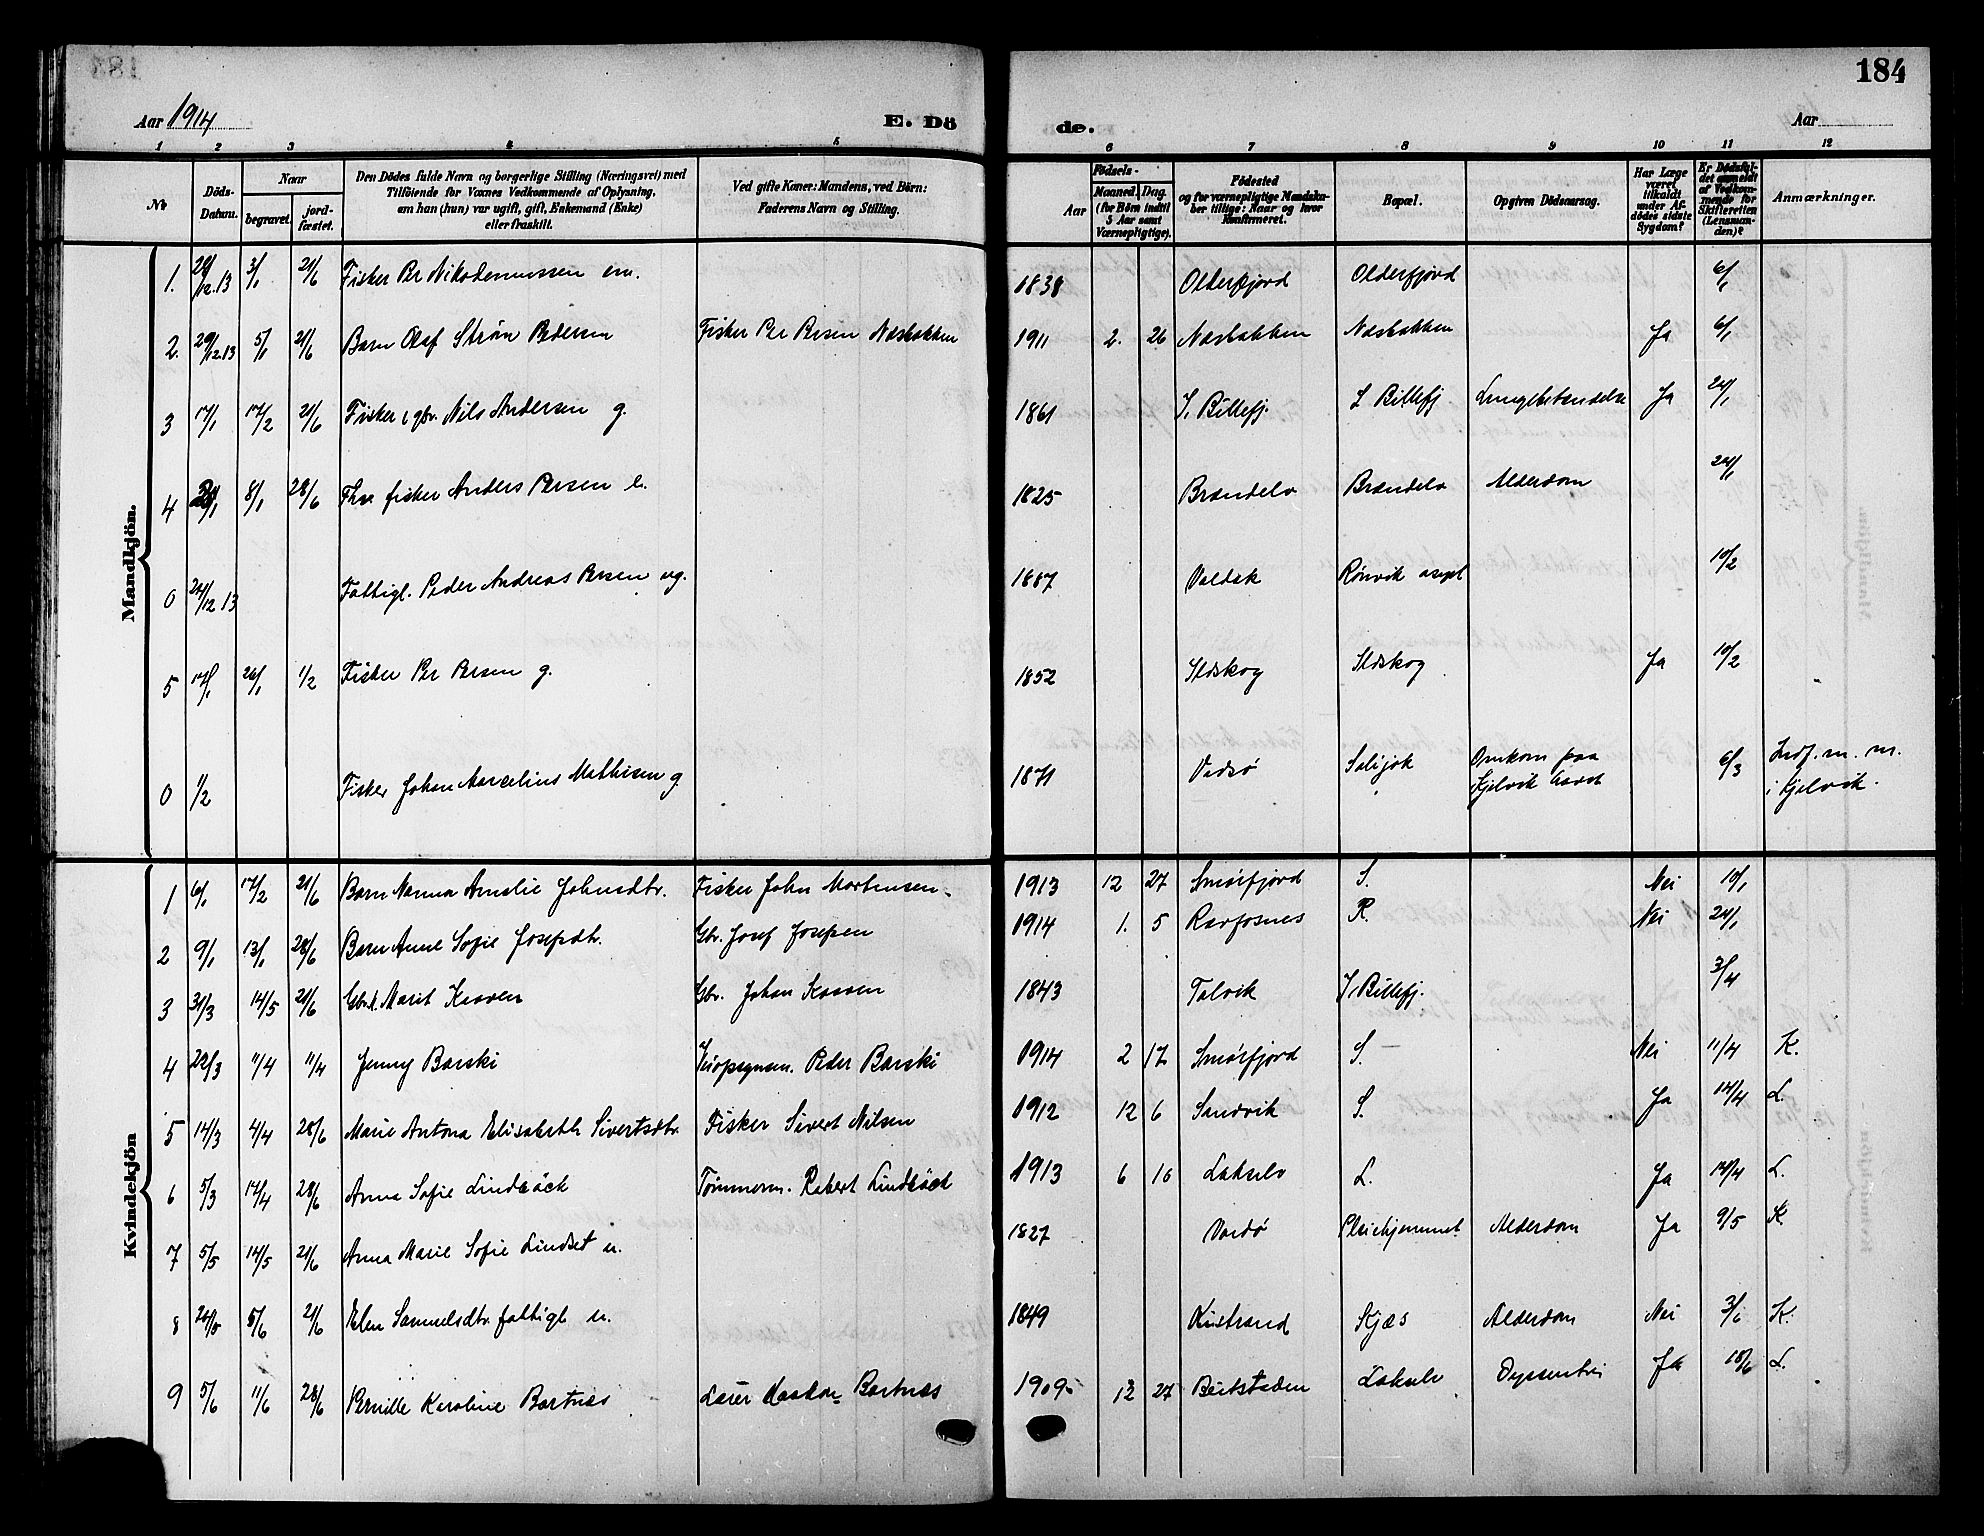 184
Aar 1914
E. Dö
de.
Aar
1 2 3 4 5 6 7 8 9 10 11 12
No
Döds-
Datum.
Naar
begravet.
jord-
fæstet.
Den Dödes fulde Navn og borgerlige Stilling (Næringsvei) med
Tilföiende for Voxnes Vedkommende af Oplysning,
om han (hun) var ugift, gift, Enkemand (Enke)
eller fraskilt.
Ved gifte Koner: Mandens, ved Börn:
Faderens Navn og Stilling.
Födsels-
Aar
Maaned.
Dag.
(for Börn indtil
3 Aar samt
Værnepligtige).
Födested
og for værnepligtige Mandskaber tillige: Naar og hvor
Konfirmeret.
Bopæl.
Opgiven Dödsaarsag.
Har Læge
været
tilkaldt
under Af-
dödes sidste
Sygdom?
Er Dödsfal-
det anmeldt
af Vedkom-
mende for
Skifteretten
(Lensman-
den)?
Anmærkninger.
Mandkjön.
1. 29/12.13 3/1 21/6 Fisker Per Nikodemussen em. 1838 Olderfjord Olderfjord 6/1
2. 29/12.13 5/1 21/6 Barn Olaf Strøm Pedersen Fisker Per Persen Næsbakken 1911 2. 26 Næsbakken Næsbakken Ja 6/1
3 17/1 17/2 21/6 Fisker i gbr. Nils Andersen g. 1861 I. Billefj. I. Billefj Lungebetændelse Ja 24/1
4 8/1 28/6 fisker Anders Persen e. 1825 Brændelv Brændelv Alderdom 24/1
0 24/12 13 Fattigl. Peder Andreas Persen ug. 1887 Valdak Rønvik asyl 10/2
5 17/1 26/1 1/2 Fisker Per Persen g. 1852 Ildskog Ildskog Ja 10/2
0 1/2 Fisker Johan Marcelius Mathisen g. 1871 Vadsø Omkom paa 6/3 Indf. m. m.
Kjelvik havet i Kjelvik.
Kvindekjön
1 6/1 17/2 21/6 Barn Nanna Amalie Johnsdtr. Fisker John Mortensen 1913 12 27 Smørfjord S. Nei 10/1
2 9/1 13/1 28/6 Barn Anne Sofie Josefsdtr. Gbr. Josef Josefsen 1914 1. 5 R. Nei 24/1
3 31/3 14/5 21/6 Marit Kaaven Gbr. Johan Kaaven 1843 Talvik I. Billefj. 3/4
4 22/3 11/4 11/4 Jenny Barski Peder Barski 1914 2 17 Smørfjord S. Nei 11/4 K.
5 14/3 4/4 28/6 Marie Antona Elisabeth Sivertsdtr. Fisker Sivert Nilsen 1912 12 6 Sandvik S. Ja 14/4 L.
6 5/3 14/4 28/6 Anna Sofie Lindbäck Tømmerm. Robert Lindbäck 1913 6 16 Lakselv L. Ja 14/4 L.
7 5/5 14/5 21/6 Anna Marie Sofie Lindset u. 1827 Vardø Pleiehjemmet Alderdom Ja 9/5 K
8 5/6 21/6 Elen Samuelsdtr. fattigl u. 1849 Kistrand Kjæs Alderdom Nei K.
9 5/6 11/6 28/6 Pernille Karoline Bartnæs Lærer Haakon Bartnæs 1909 12 27 Beitstaden Lakselv Dyssentri Ja 18/6 L.